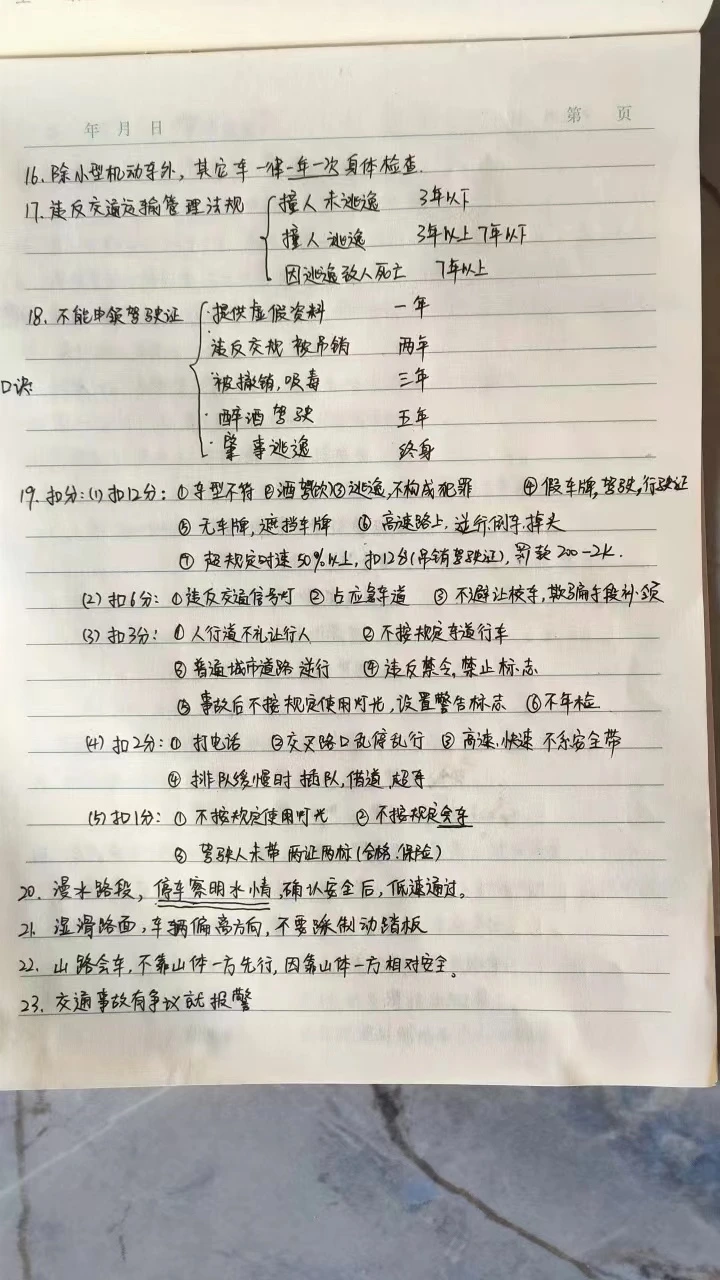 年 月 日 第 页
16. 除小型机动车外, 其它车一律一年一次身体检查.
17. 违反交通运输管理法规 { 撞人未逃逸 3年以下
撞人逃逸 3年以上7年以下
因逃逸致人死亡 7年以上
18. 不能申领驾驶证 { ·提供虚假资料 一年
·违反交规 被吊销 两年
口诀:
·被撤销,吸毒 三年
·醉酒驾驶 五年
·肇事逃逸 终身
19. 扣分: (1) 扣12分: ①车型不符 ②酒驾(饮) ③逃逸,不构成犯罪 ④假车牌,驾驶,行驶证
⑤无车牌,遮挡车牌 ⑥高速路上,逆行,倒车.掉头
⑦超规定时速50%以上, 扣12分(吊销驾驶证), 罚款200-2k.
(2) 扣6分: ①违反交通信号灯 ②占应急车道 ③不避让校车,欺骗手段补领
(3) 扣3分: ①人行道不礼让行人 ②不按规定车道行车
③普通城市道路逆行 ④违反禁令,禁止标志
⑤事故后不按规定使用灯光,设置警告标志 ⑥不年检
(4) 扣2分: ①打电话 ②交叉路口乱停乱行 ③高速.快速 不系安全带
④排队缓慢时 插队,借道,超车
(5) 扣1分: ①不按规定使用灯光 ②不按规定会车
③驾驶人未带两证两标(合格.保险)
20. 漫水路段, 停车察明水情,确认安全后,低速通过。
21. 湿滑路面,车辆偏离方向,不要踩制动踏板
22. 山路会车,不靠山体一方先行,因靠山体一方相对安全。
23. 交通事故有争议就报警